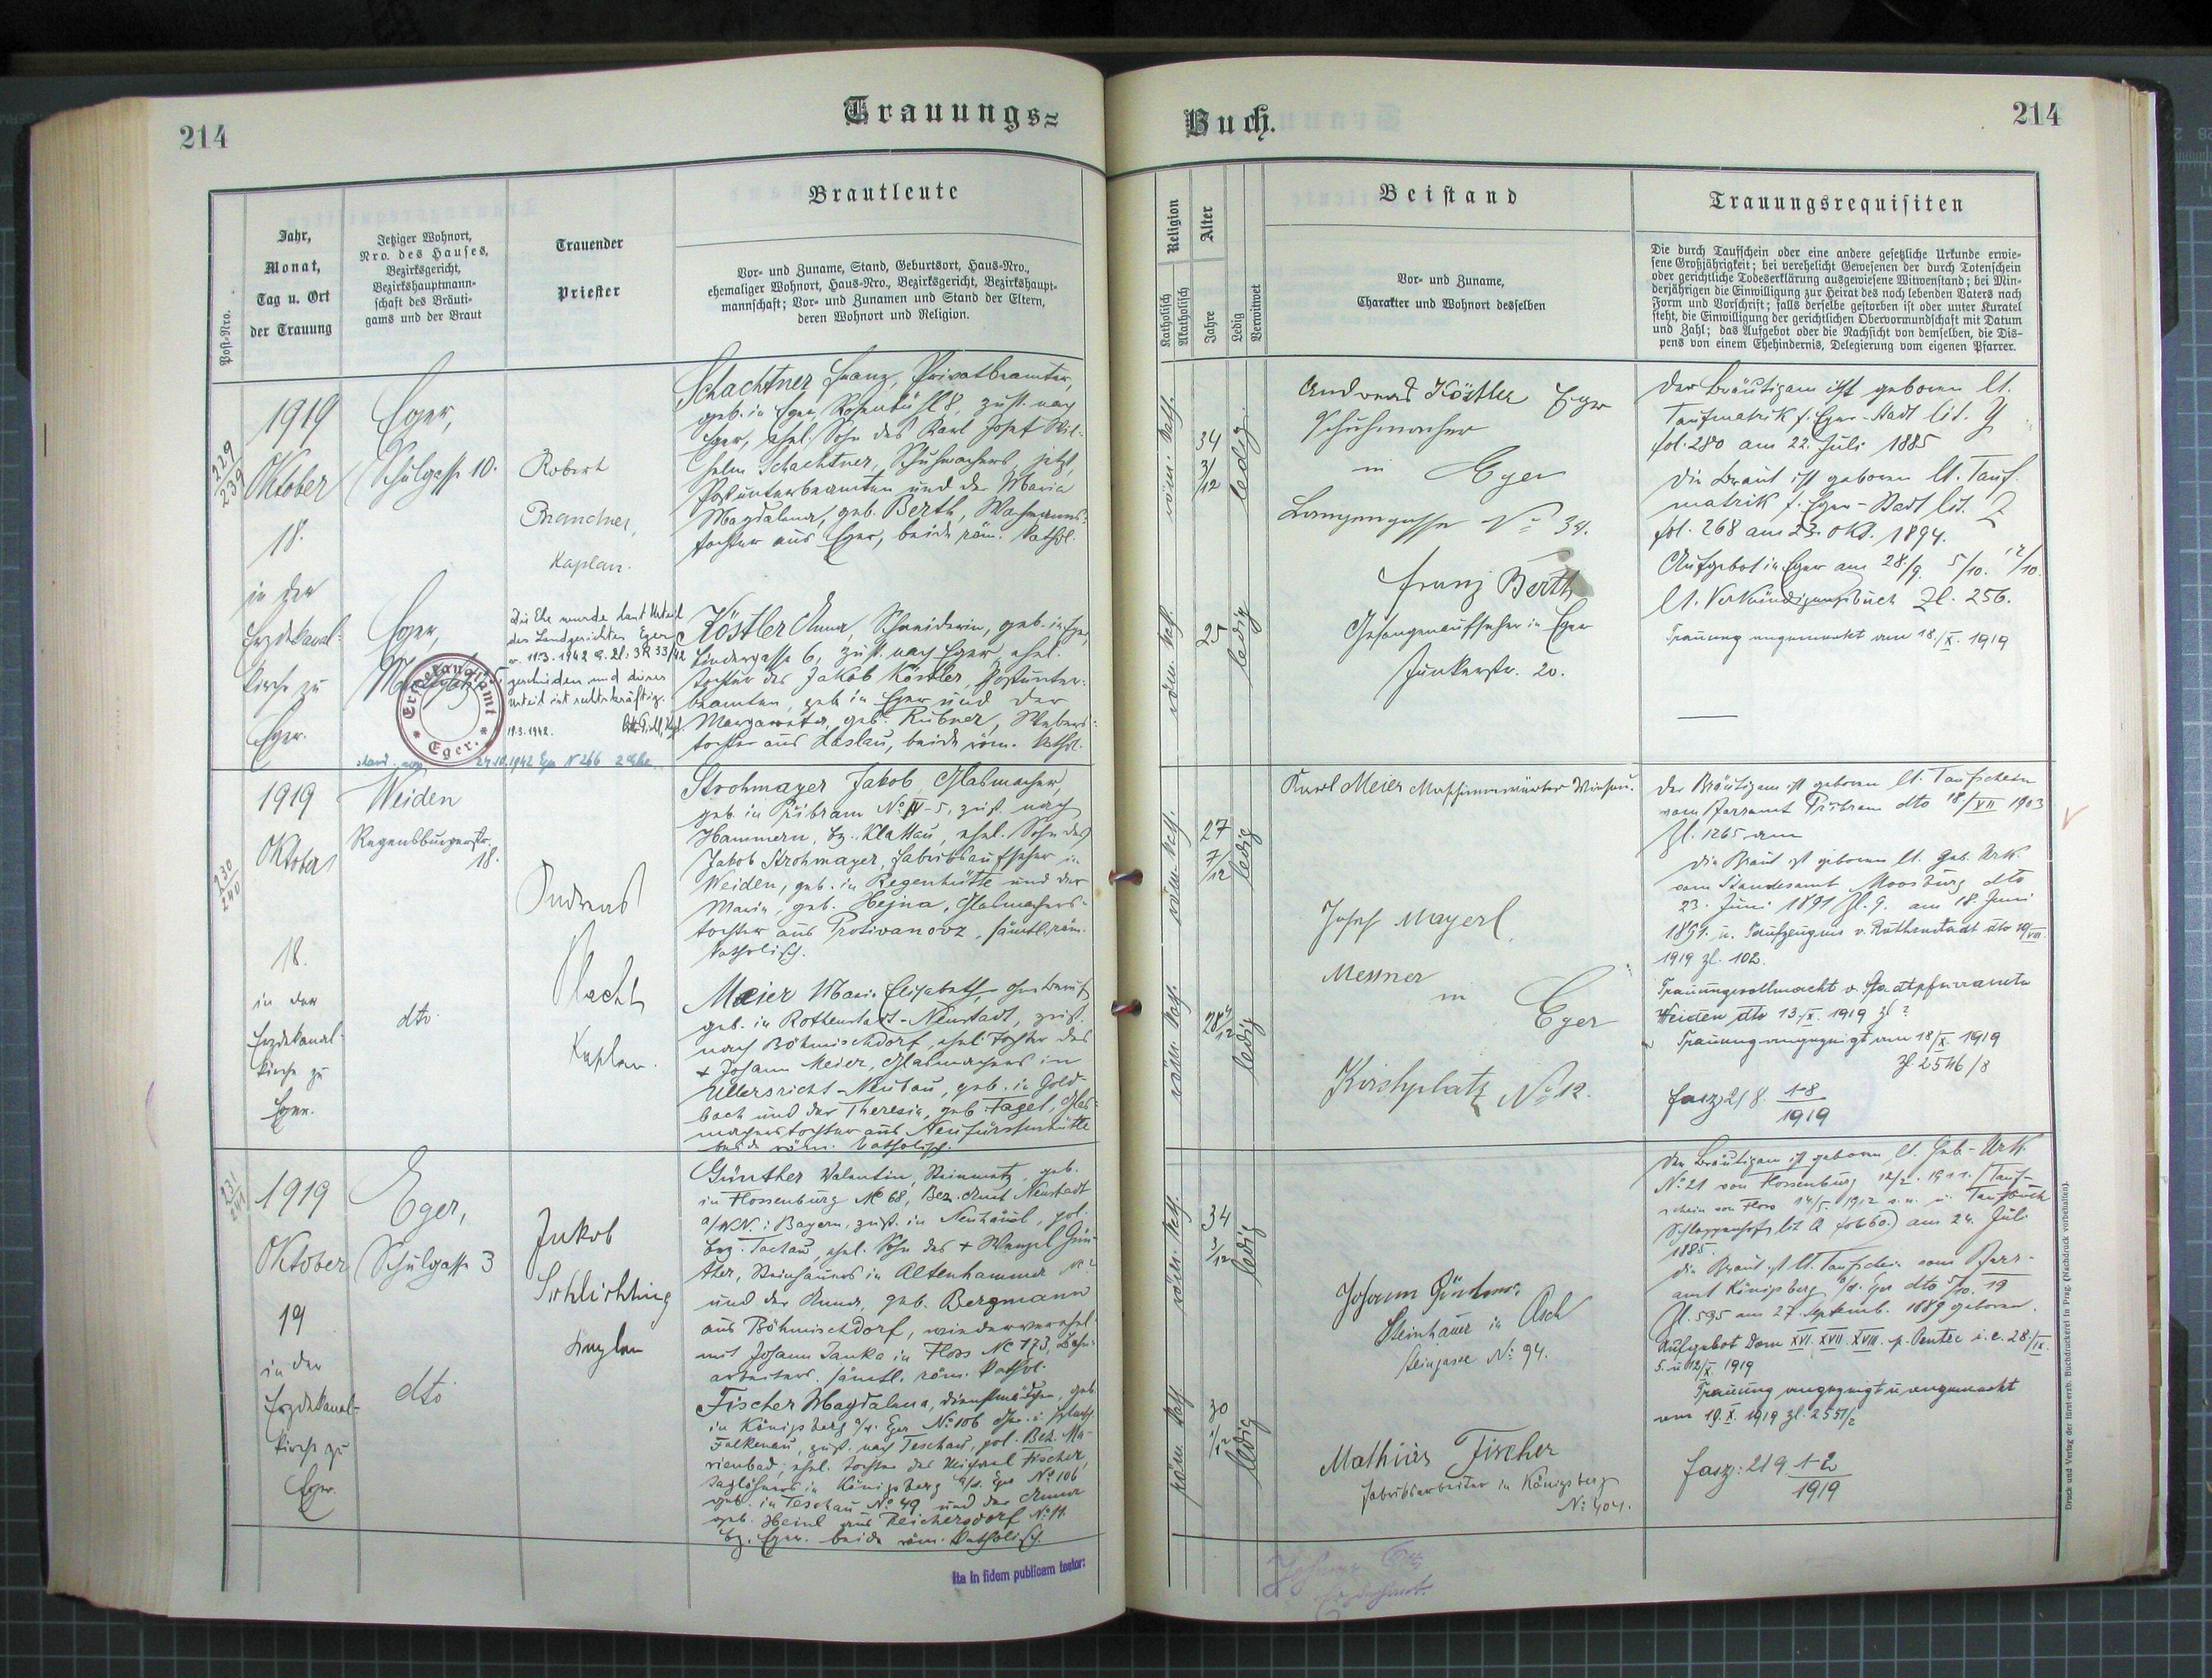 214
Trauungs=
Post-Nro.
Jahr,
Monat,
Tag u. Ort
der Trauung
Jetziger Wohnort,
Nro. des Hauses,
Bezirksgericht,
Bezirkshauptmann-
schaft des Bräuti-
gams und der Braut
Trauender
Priester
Brautleute
Vor- und Zuname, Stand, Geburtsort, Haus-Nro.,
ehemaliger Wohnort, Haus-Nro., Bezirksgericht, Bezirkshaupt-
mannschaft; Vor- und Zunamen und Stand der Eltern,
deren Wohnort und Religion.
229
239
1919
Oktober
18.
in der
Erzdekanal-
kirche zu
Eger.
Eger,
Schulgasse 10.
Eger,
Erzdekanalamt
* Eger. *
Robert
Kaplan.
Die Ehe wurde laut Urteil
des Landgerichtes Eger
v. 11.3.1942 G. Zl: 3R 33/42
geschieden und dieses
Urteil ist rechtskräftig.
19.3.1942.
24.10.1942 Eger N 266
Schachtner Franz, Privatbeamter,
geb. in Eger, Rosenbühl 8, zust. nach
Eger, ehel. Sohn des Karl Josef Wil-
helm Schachtner, Schuhmachers, jetzt,
Postunterbeamten und der Maria
Magdalena, geb. Berth,
tochter aus Eger, beide röm. kathol.
Köstler Anna, Schneiderin, geb. in Eger,
Lindergasse 6, zust. nach Eger, ehel.
Tochter des Jakob Köstler, Postunter-
beamten, geb. in Eger und der
Margareta, geb. Rubner, Webers-
tochter aus Haslau, beide röm. kathol.
230
240
1919
Oktober
18.
in der
Erzdekanal-
kirche zu
Eger.
Weiden
Regensburgerstr.
18.
dto.
Andreas
Placht
Kaplan.
Strohmayer Jakob, Glasmacher,
geb. in Přibram No IV-5, zust. nach
Hammern, bz. Klattau, ehel. Sohn des
Jakob Strohmayer, Fabriksaufseher in
Weiden, geb. in Regenhütte und der
Maria, geb. Hejna, Glasmachers-
tochter aus Protivanovz, sämtl. röm.
katholisch.
Meier Maria Elisabeth,
geb. in Rothenstadt-Neustadt, zust.
nach Böhmischdorf, ehel. Tochter des
+ Johann Meier, Glasmachers in
Ullersricht-Neubau, geb. in Gold-
bach und der Theresia, geb. Fagel, Glas-
macherstochter aus Neufürstenhütte
beide röm. katholisch.
231
241
1919
Oktober
19
in der
Erzdekanal-
kirche zu
Eger.
Eger,
Schulgasse 3
dto
Jakob
Schlichting
Kaplan
Günther Valentin, Steinmetz, geb.
in Flossenburg No 68, Bez. Amt Neustadt
a/WN. i. Bayern, zust. in Neuhäusl, pol.
bez. Tachau, ehel. Sohn des + Wenzel Gün-
ther, Steinhauers in Altenhammer
und der Anna, geb. Bergmann
aus Böhmischdorf, wiederverehel.
mit Johann Janka in Floss No 173, Bahn-
arbeiters, sämtl. röm. kathol.
Fischer Magdalena, Dienstmädchen, geb.
in Königsberg a/d. Eger No 106
Falkenau, zust. nach Teschau, pol. Bez. Ma-
rienbad, ehel. Tochter des Michael Fischer,
Taglöhners in Königsberg a/d. Eger No 106
geb. in Teschau No 49 und der Anna
geb. Heinl aus Reichersdorf No 11.
bz. Eger. beide röm. katholisch.
Ita in fidem publicam testor:
Buch.
214
Religion
Katholisch
Akatholisch
Alter
Jahre
Ledig
Verwitwet
Beistand
Vor- und Zuname,
Charakter und Wohnort desselben
Trauungsrequisiten
Die durch Taufschein oder eine andere gesetzliche Urkunde erwie-
sene Großjährigkeit; bei verehelicht Gewesenen der durch Totenschein
oder gerichtliche Todeserklärung ausgewiesene Witwenstand; bei Min-
derjährigen die Einwilligung zur Heirat des noch lebenden Vaters nach
Form und Vorschrift; falls derselbe gestorben ist oder unter Kuratel
steht, die Einwilligung der gerichtlichen Obervormundschaft mit Datum
und Zahl; das Aufgebot oder die Nachsicht von demselben, die Dis-
pens von einem Ehehindernis, Delegierung vom eigenen Pfarrer.
röm. kath.
34
3/12
ledig.
röm. kath.
25
ledig
Andreas Köstler Eger
Schuhmacher
in Eger
Langengasse No 34.
Franz Berth
Gefangenaufseher in Eger
Junkerstr. 20.
Der Bräutigam ist geboren lt.
Taufmatrik f. Eger-Stadt lit. Y
fol. 280 am 22. Juli 1885
Die Braut ist geboren lt. Tauf-
matrik f. Eger-Stadt lit. Z
fol. 268 am 23. Okt. 1894.
Aufgebot in Eger am 28./9. 5/10. 12/10.
lt. Verkündigungsbuch Zl. 256.
Trauung angemerkt am 18./X. 1919
röm. kath.
27
7/12
ledig
röm. kath.
28 4/12
ledig
Karl Meier Maschinenwärter
Josef Mayerl
Messner
in Eger
Kirchplatz No 12.
Der Bräutigam ist geboren lt. Taufschein
vom Pfarramt Přibram dto 18/VII 1913
Zl. 1265 am
Die Braut ist geboren lt. Geb. Urk.
vom Standesamt Moosburg dto
23. Juni 1891 Zl. 9. am 18. Juni
1891. u. Taufzeugnis v. Rothenstadt dto 19/VIII.
1919 Zl. 102.
Trauungsvollmacht v. Stadtpfarramte
Weiden dto 13./X. 1919 Zl ?
Trauung angezeigt am 18/X. 1919
Zl. 2546/8
fasz. 218. 1-8
1919
röm. kath.
34
3/12
ledig
röm. kath
30
1/12
ledig
Johann Günther
Steinhauer in Asch
Steingasse No 94.
Mathias Fischer
Fabriksarbeiter in Königsberg
No 404.
Der Bräutigam ist geboren lt. Geb-Urk.
No 21 von Flossenburg 12/2. 1911. (Tauf-
schein von Floss 14/5. 1912 u. Taufbuch
lit A fol 60.) am 24. Juli
1885.
Die Braut ist lt. Taufschein vom Pfarr-
amt Königsberg a/d. Eger dto 5/10. 19
Zl. 595 am 27. Septemb. 1889 geboren.
Aufgebot Dom XVI. XVII. XVIII. p. Pentec i. e. 28./IX.
5. u 12/X. 1919
Trauung angezeigt u angemerkt
am 19. X. 1919 Zl. 2551/2
fasz: 219. 1-2
1919
Druck und Verlag der fürst-erzb. Buchdruckerei in Prag. (Nachdruck vorbehalten).